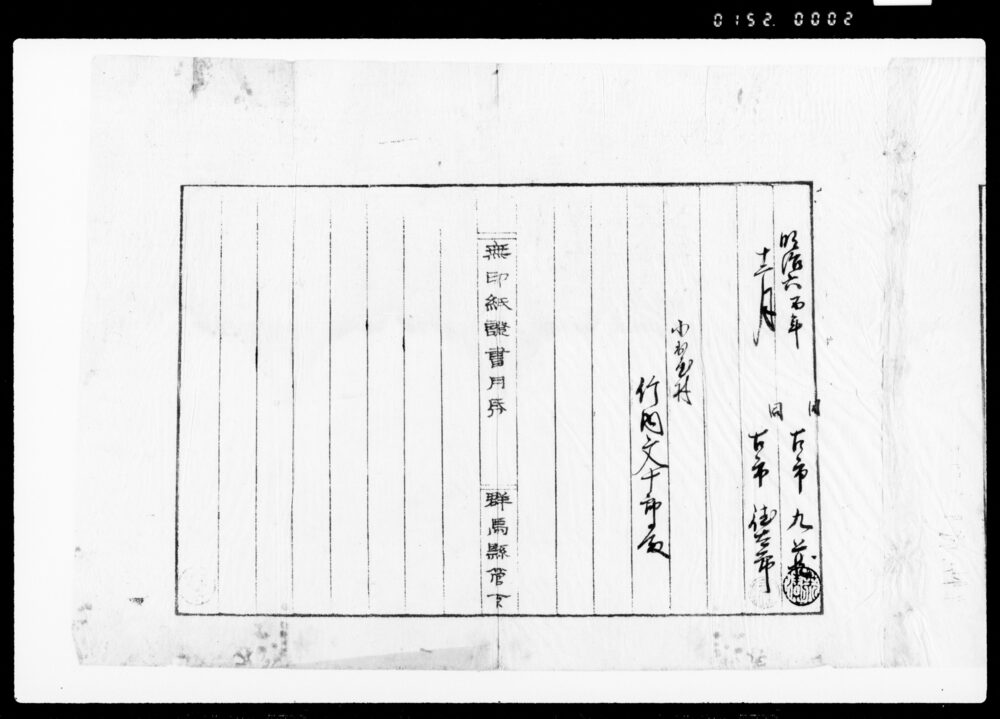 0152 0002
明治六酉年
同 古市 九蔵
十二月
同 古市
村
竹内文十郎殿
無印紙證書用券
群馬縣管下